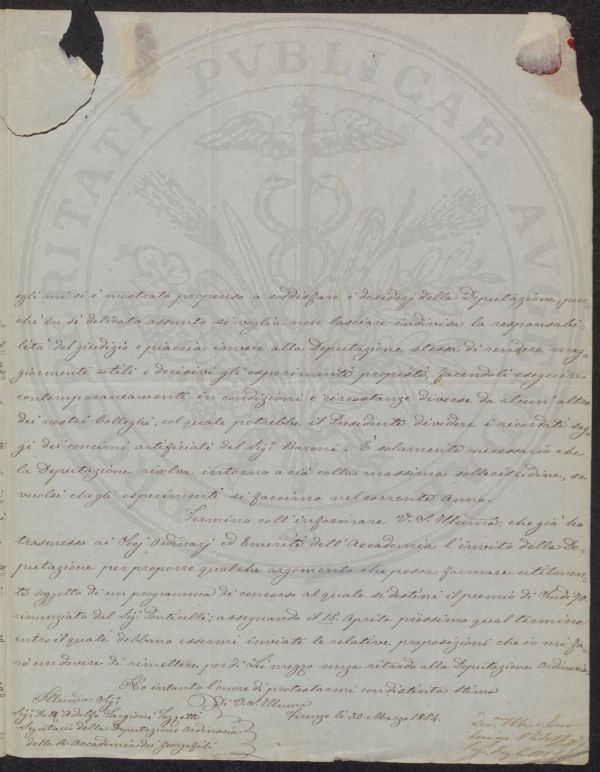 PROSPERITATI PUBLICAE AUGENDAE
egli mi si è mostrato propenso a soddisfare i desiderj della Deputazione, pur-
chè in sì delicato assunto si voglia non lasciare indivisa la responsabi-
lità del giudizio e piaccia invece alla Deputazione stessa di rendere mag-
giormente utili e decisivi gli esperimenti proposti, facendoli eseguire
contemporaneamente in condizioni e circostanze diverse da alcun'altro
dei nostri Colleghi, col quale potrebbe il Presidente dividere i ricordati sag-
gi dei concimi artificiali del Sigr. Baroni. È solamente necessario che
la Deputazione risolva intorno a ciò colla massima sollecitudine, se
vuolsi che gli esperimenti si facciano nel corrente Anno.
Termino coll'informare V. S. Illuma: che già ho
trasmesso ai Socj Ordinarj ed Emeriti dell'Accademia l'invito della De-
putazione per proporre qualche argomento che possa formare utilmen-
te soggetto di un programma di concorso al quale si destini il premio di Scudi 70.
rinunziato dal Sigr. Ponticelli; assegnando il 15. Aprile prossimo qual termine
entro il quale debbono essermi inviate le relative proposizioni che io mi fa-
rò un dovere di rimettere per di Lei mezzo senza ritardo alla Deputazione Ordinaria
Ho intanto l'onore di protestarmi con distinta stima
Di V. S. Illuma
Illumo: Sigr.
Sigr. Dott. Adolfo Targioni Tozzetti
Segretario della Deputazione Ordinaria
della R. Accademia dei Georgofili
Firenze li 30 Marzo 1854.